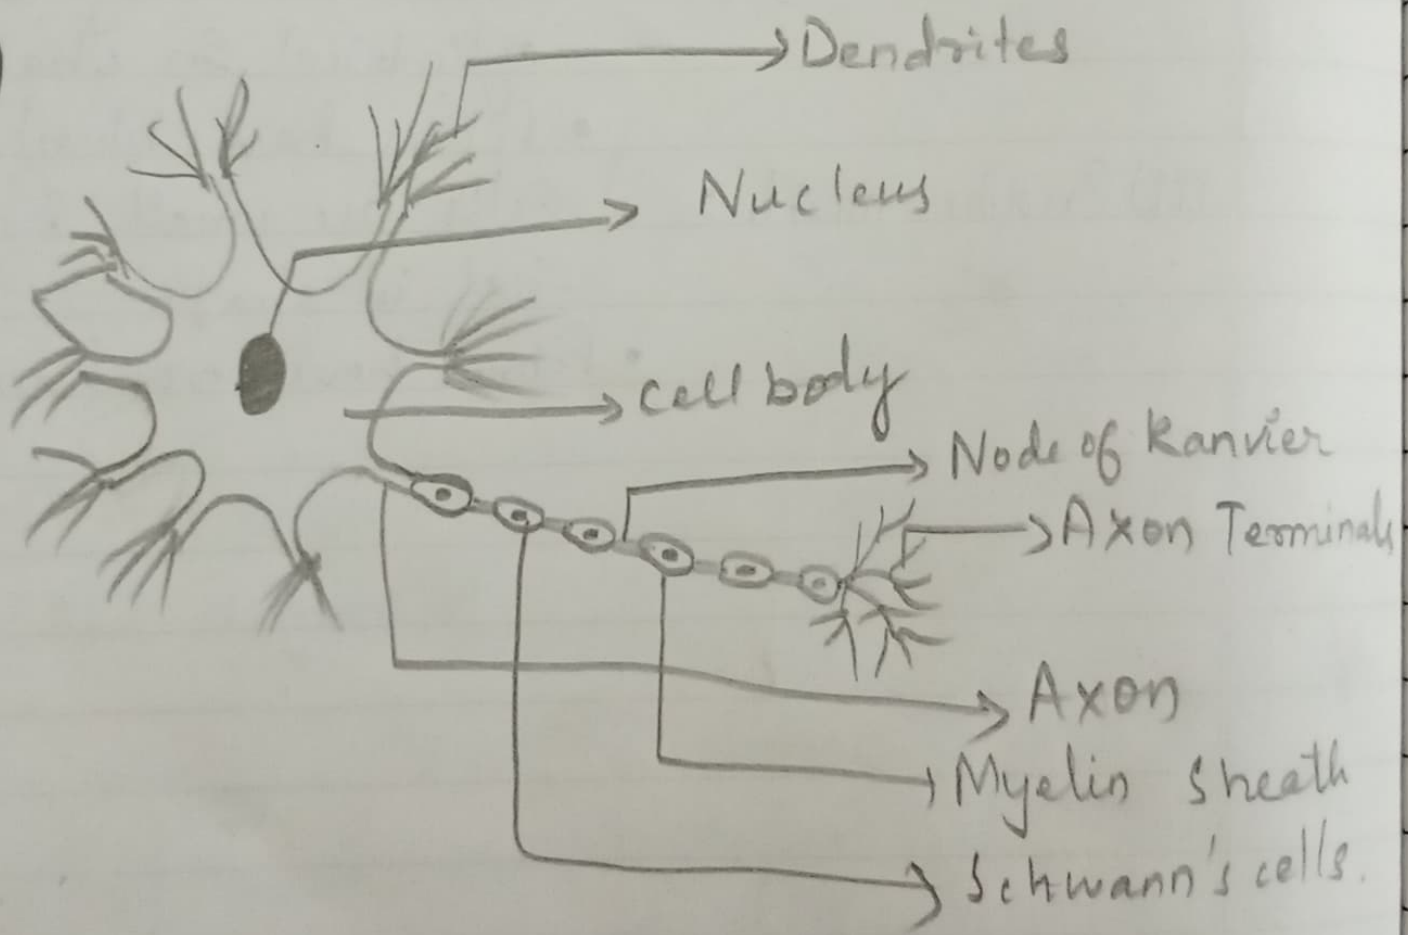 Dendrites
Nucleus
Cell body
Node of Ranvier
Axon Terminals
Axon
Myelin Sheath
Schwann's cells.